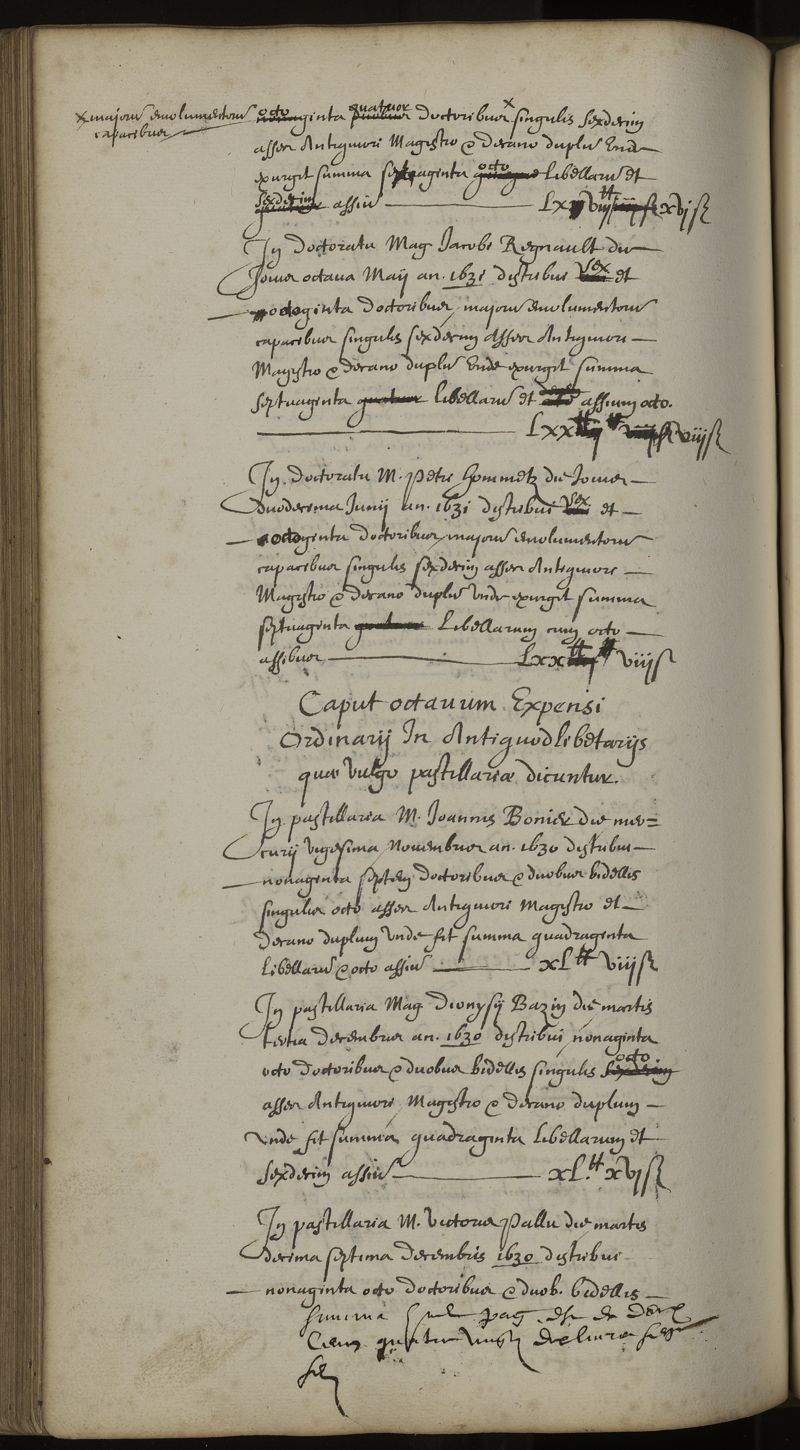 x majorū emolumentorū
capacibus
octoginta quatuor doctoribus x singulis sexdecim
asses Antiquiori Magistro & decano duplū Unde
exurgit summa septuaginta octo libellarū et
sexdecim assiū LXXVIII tt XVI s
In doctoratu Mag. Jacobi Regnault die
Jovis octava Maij an. 1631 distribui sex et
octoginta doctoribus majorū emolumentorū
capacibus singulis sexdecim asses Antiquiori
Magistro & decano duplū Unde exurgit summa
septuaginta libellarū et assium octo.
LXX tt viij s
In doctoratu M. Petri Hommetz die Jovis
duodecima Junij an. 1631 distribui sex et
octoginta doctoribus majorū emolumentorū
capacibus singulis sexdecim asses Antiquiori
Magistro & decano duplū unde exurgit summa
septuaginta libellarum cum octo
assibus LXX tt viij s
Caput octavum Expensi
Ordinarij In Antiquodlibetarijs
quæ vulgo pastillariæ dicuntur.
In pastillaria M. Joannis Bonier die mer=
curij vigesima Novembris an. 1630 distribui
nonaginta septem doctoribus & duobus bidellis
singulis octo asses Antiquiori Magistro et
Decano duplum Unde fit summa quadraginta
libellarū & octo assiū XL tt viij s
In pastillaria Mag. Dionysij Bazin die martis
tertia decembris an. 1630 distribui nonaginta
octo doctoribus & duobus bidellis singulis octo
asses Antiquiori Magistro & decano duplum
unde fit summa quadraginta libellarum et
sexdecim assiū XL tt xvj s
In pastillaria M. Victoris Pallu die martis
decima septima decembris 1630 distribui
nonaginta octo doctoribus & duob. bidellis
summa pag. est de deux
Cens quatre vingt livres